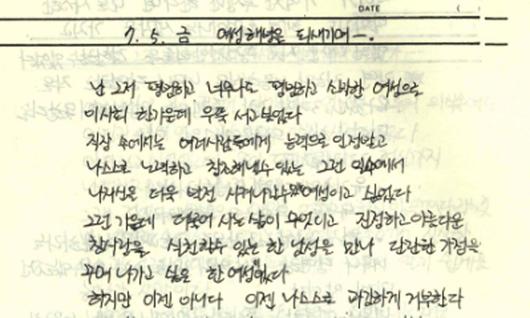 DATE ( )
7. 5. 금 여성해방을 되새기며—.
난 그저 평범하고 너무나도 평범하고 소박한 여성으로
이사회 한가운데 우뚝 서고 싶었다
직장 속에서는 여러사람들에게 능력으로 인정받고
나스스로 노력하고 창조해낼수 있는 그런 일속에서
나자신을 더욱 발전 시켜나갈수 있는 여성이고 싶었다
그런 가운데 더불어 사는 삶이 무엇이고 진정하고 아름다운
참사랑을 실천할수 있는 한 남성을 만나 단란한 가정을
꾸며 나가고 싶은 한 여성였다
하지만 이젠 아니다 이젠 나스스로 과감하게 거부한다